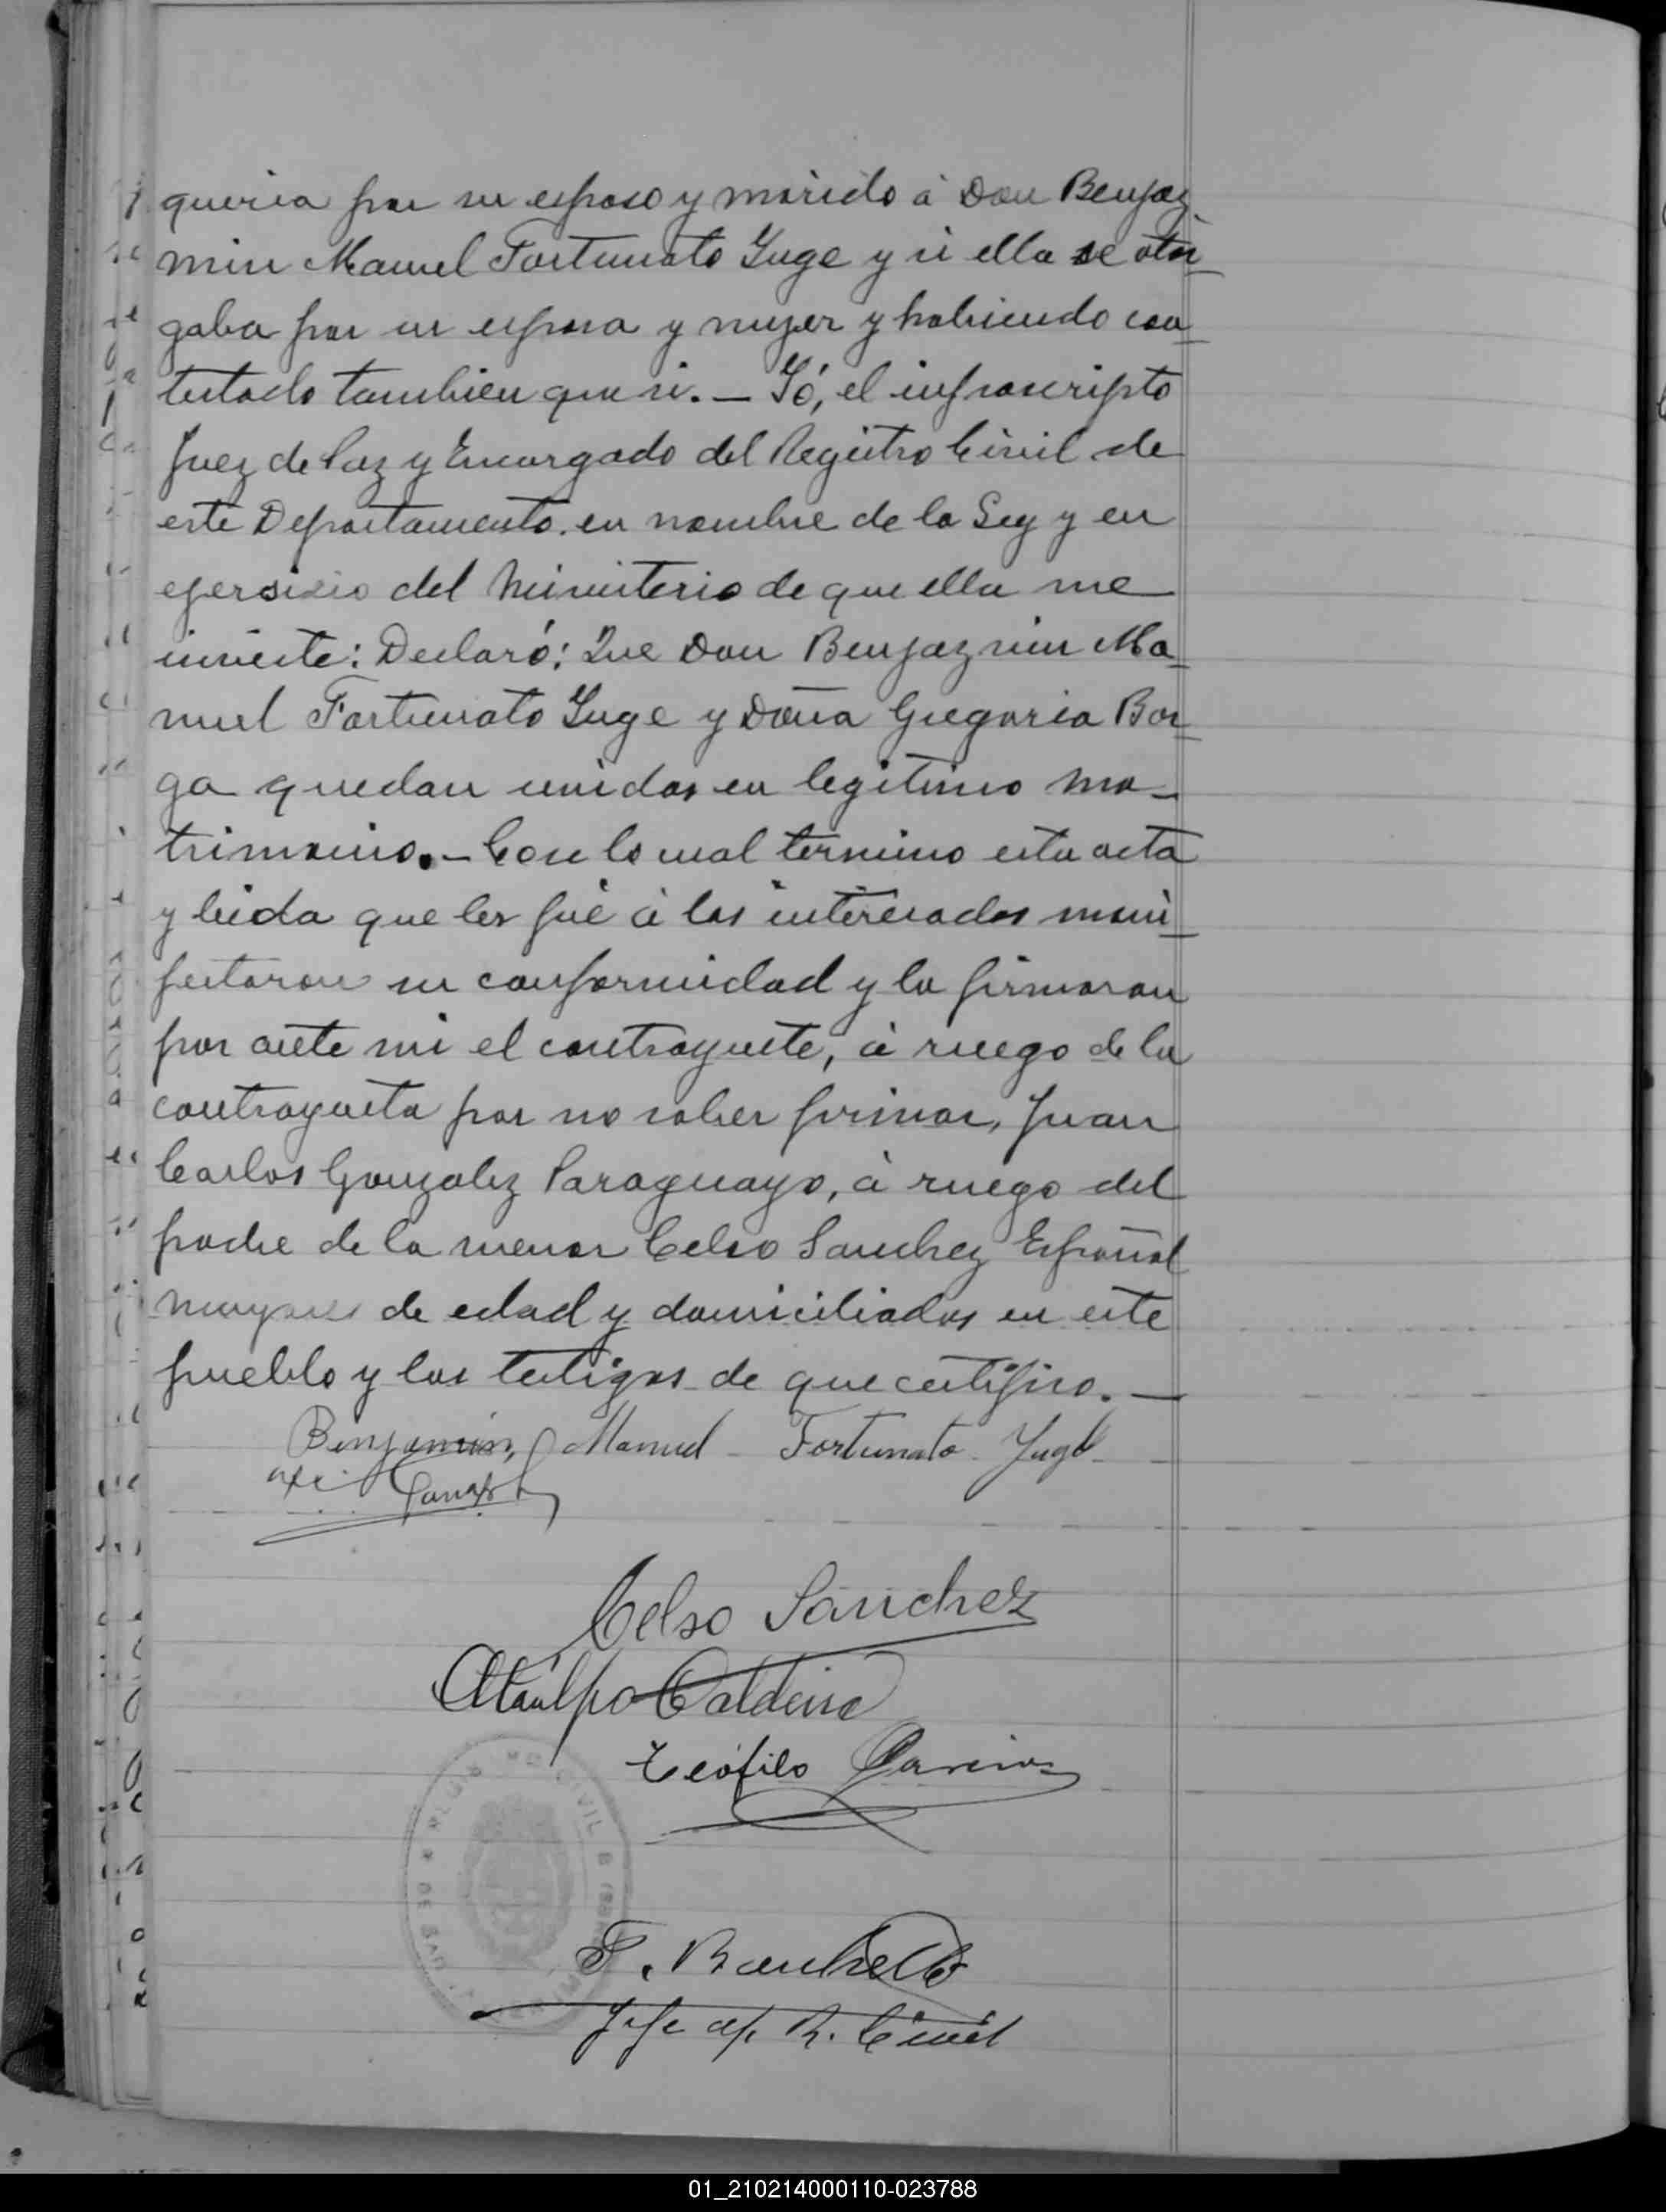 queria por su esposo y marido á Don Benjaz
min Manuel Fortunato Yuge y si ella se otor_
gaba por su esposa y mujer y habiendo con_
testado tambien que si. — Yó, el infrascripto
Juez de Paz y Encargado del Registro Civil de
este Departamento. en nombre de la Ley y en
ejersisio del Ministerio de que ella me
inviste: Declaró: Que Don Benjazmin Ma_
nuel Fortunato Yuge y Doña Gregoria Bor_
ga quedan unidos en legitimo ma_
trimonio. — Con lo cual termino esta acta
y leida que les fué á los interesados mani_
festaron su conformidad y la firmaron
por ante mi el contrayente, á ruego de la
contrayenta por no saber firmar, Juan
Carlos Gonzalez Paraguayo, á ruego del
padre de la menor Celso Sanchez Español
mayores de edad y domiciliados en este
pueblo y los testigos de que certifico. —
Benjamin, Manuel Fortunato Yuge
Celso Sánchez
Ataulfo Caldeira
Teófilo
Jefe del R. Civil
01_210214000110-023788